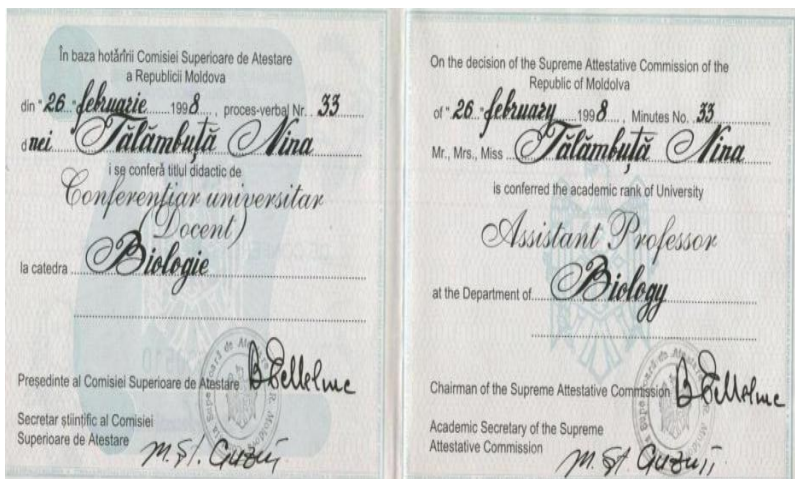 În baza hotărîrii Comisiei Superioare de Atestare
a Republicii Moldova
din "26" februarie 1998, proces-verbal Nr. 33
dnei Tălămbuță Nina
i se conferă titlul didactic de
Conferențiar universitar
(Docent)
la catedra Biologie
Președinte al Comisiei Superioare de Atestare
Secretar științific al Comisiei
Superioare de Atestare
On the decision of the Supreme Attestative Commission of the
Republic of Moldolva
of "26" february 1998, Minutes No. 33
Mr., Mrs., Miss Tălămbuță Nina
is conferred the academic rank of University
Assistant Professor
at the Department of Biology
Chairman of the Supreme Attestative Commission
Academic Secretary of the Supreme
Attestative Commission